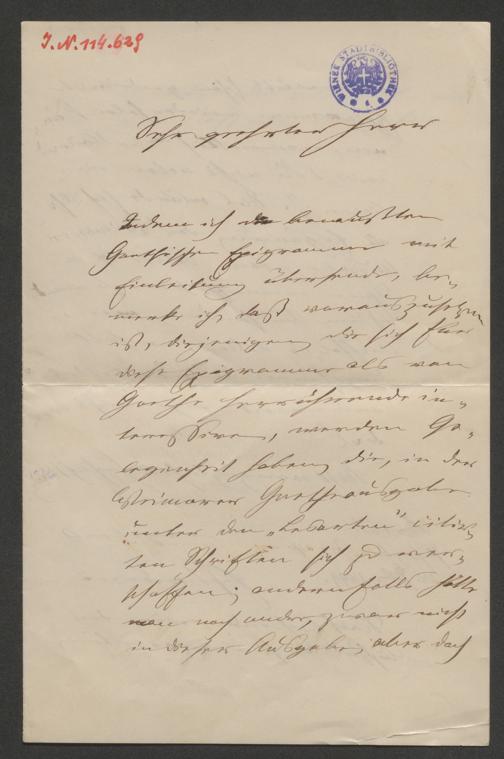 J. N. 114.629
WIENER STADTBIBLIOTHEK
Sehr geehrter Herr
Indem ich die bewußten
Goethischen Epigramme mit
Einleitung übersende, be-
merke ich, daß vorauszusetzen
ist, diejenigen, die sich für
diese Epigramme als von
Goethe herrührende in-
teressiren, werden Ge-
legenheit haben, die, in der
Weimarer Goetheausgabe
unter den „Lesarten" citir-
ten Schriften sich zu ver-
schaffen; andernfalls hätte
man noch andre, zwar nicht
in dieser Ausgabe, aber doch